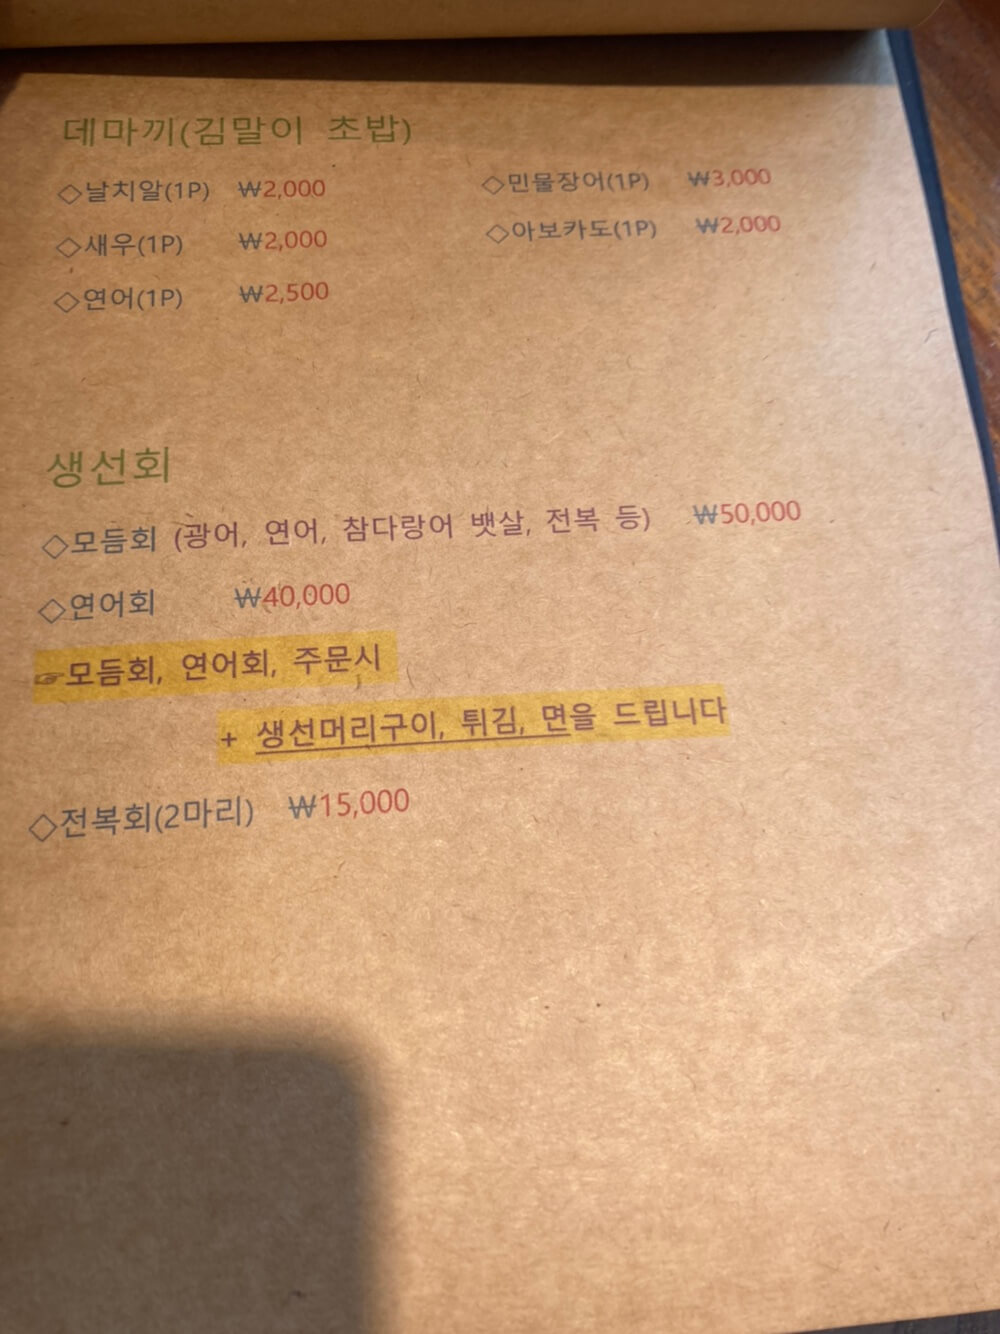 데마끼(김말이 초밥)
◇날치알(1P) ₩2,000 ◇민물장어(1P) ₩3,000
◇새우(1P) ₩2,000 ◇아보카도(1P) ₩2,000
◇연어(1P) ₩2,500
생선회
◇모듬회 (광어, 연어, 참다랑어 뱃살, 전복 등) ₩50,000
◇연어회 ₩40,000
☞모듬회, 연어회, 주문시
+ 생선머리구이, 튀김, 면을 드립니다
◇전복회(2마리) ₩15,000